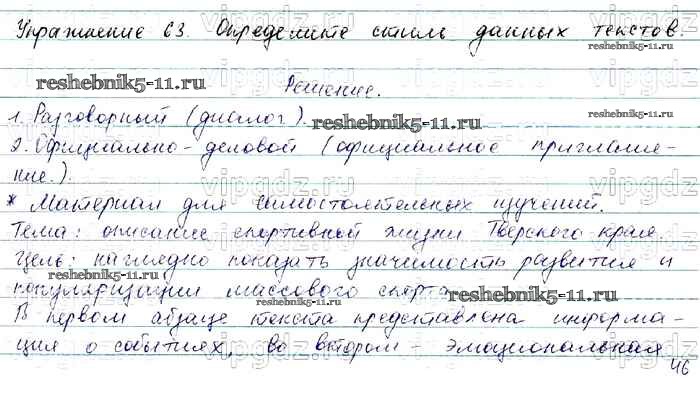 Упражнение 63. Определите стиль данных текстов.
reshebnik5-11.ru
Решение.
reshebnik5-11.ru
1. Разговорный (диалог).
reshebnik5-11.ru
2. Официально-деловой (официальное приглаше-
ние.).
* Материал для самостоятельных изучений.
Тема: описание спортивной жизни Тверского края.
Цель: наглядно показать значимость развития и
reshebnik5-11.ru
популяризации массового спорта.
reshebnik5-11.ru
reshebnik5-11.ru
В первом абзаце текста представлена информа-
ция о событиях, во втором - эмоциональная
46
vipgdz